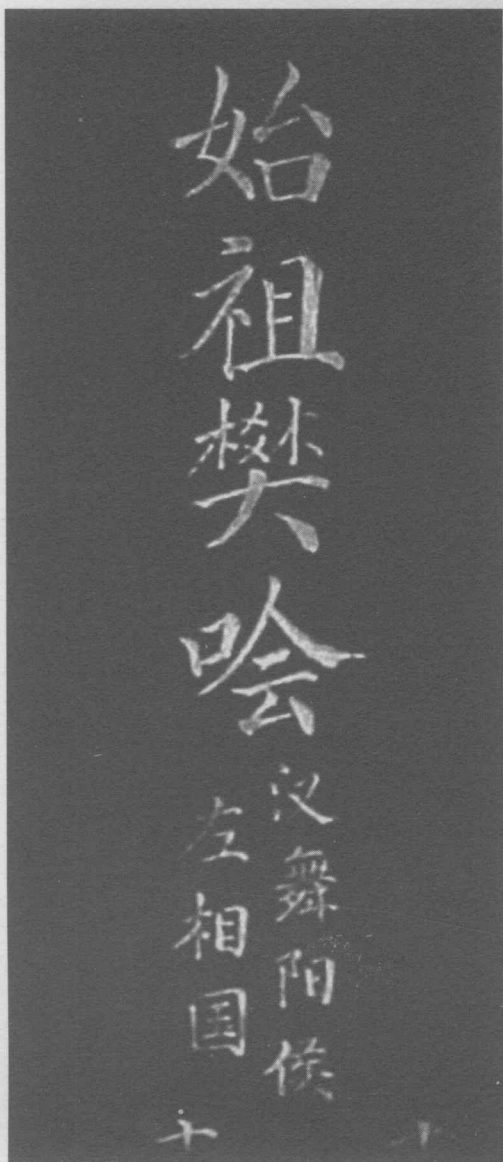 始祖樊哙
汉舞阳侯
左相国